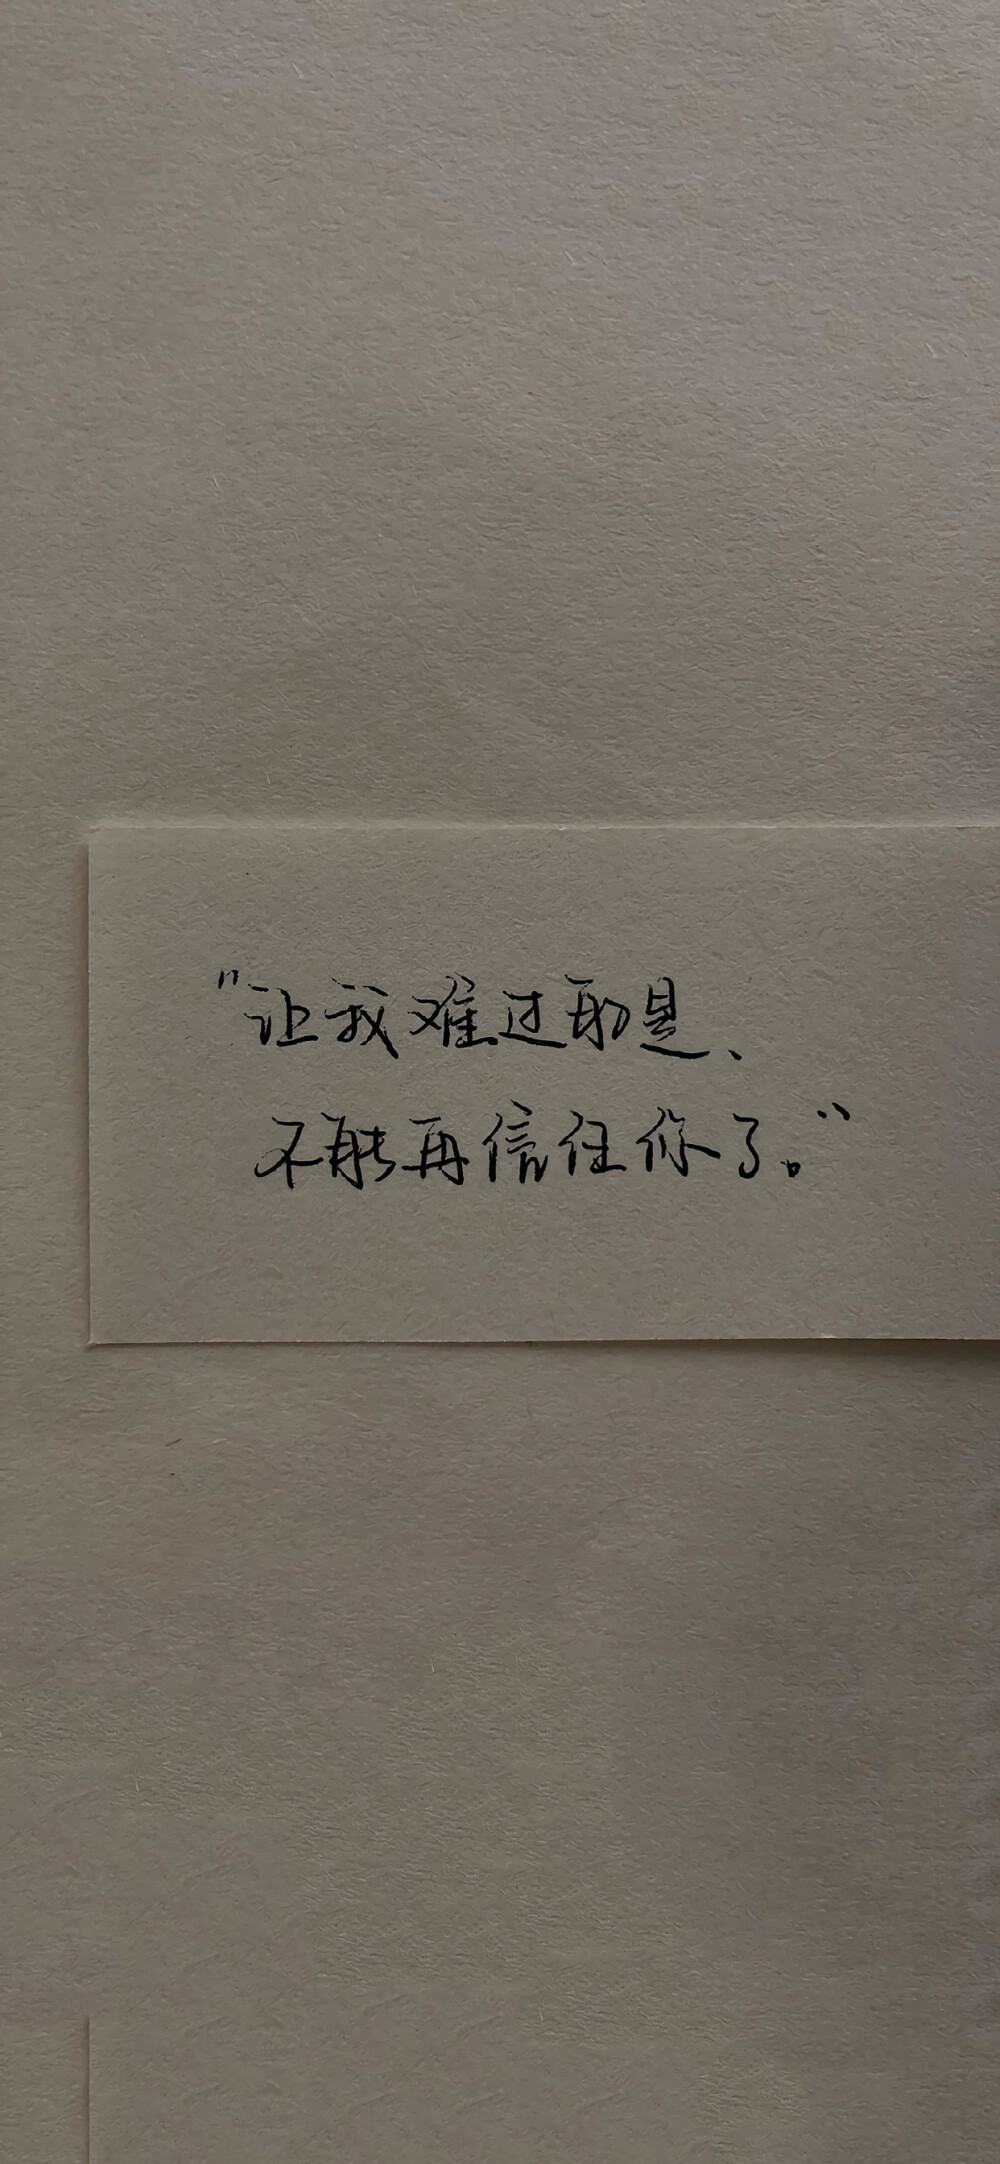 "让我难过的是、
不能再信任你了。"